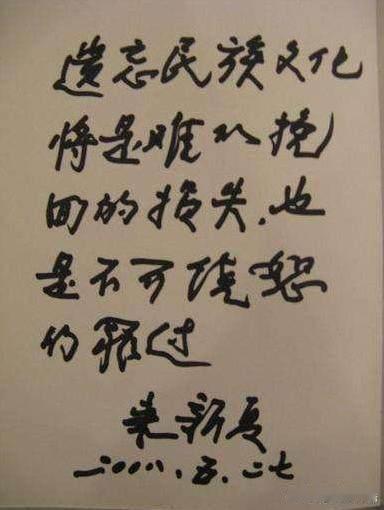 遗忘民族文化
将是难以挽
回的损失.也
是不可饶恕
的罪过
来新夏
二〇〇八.五.二七